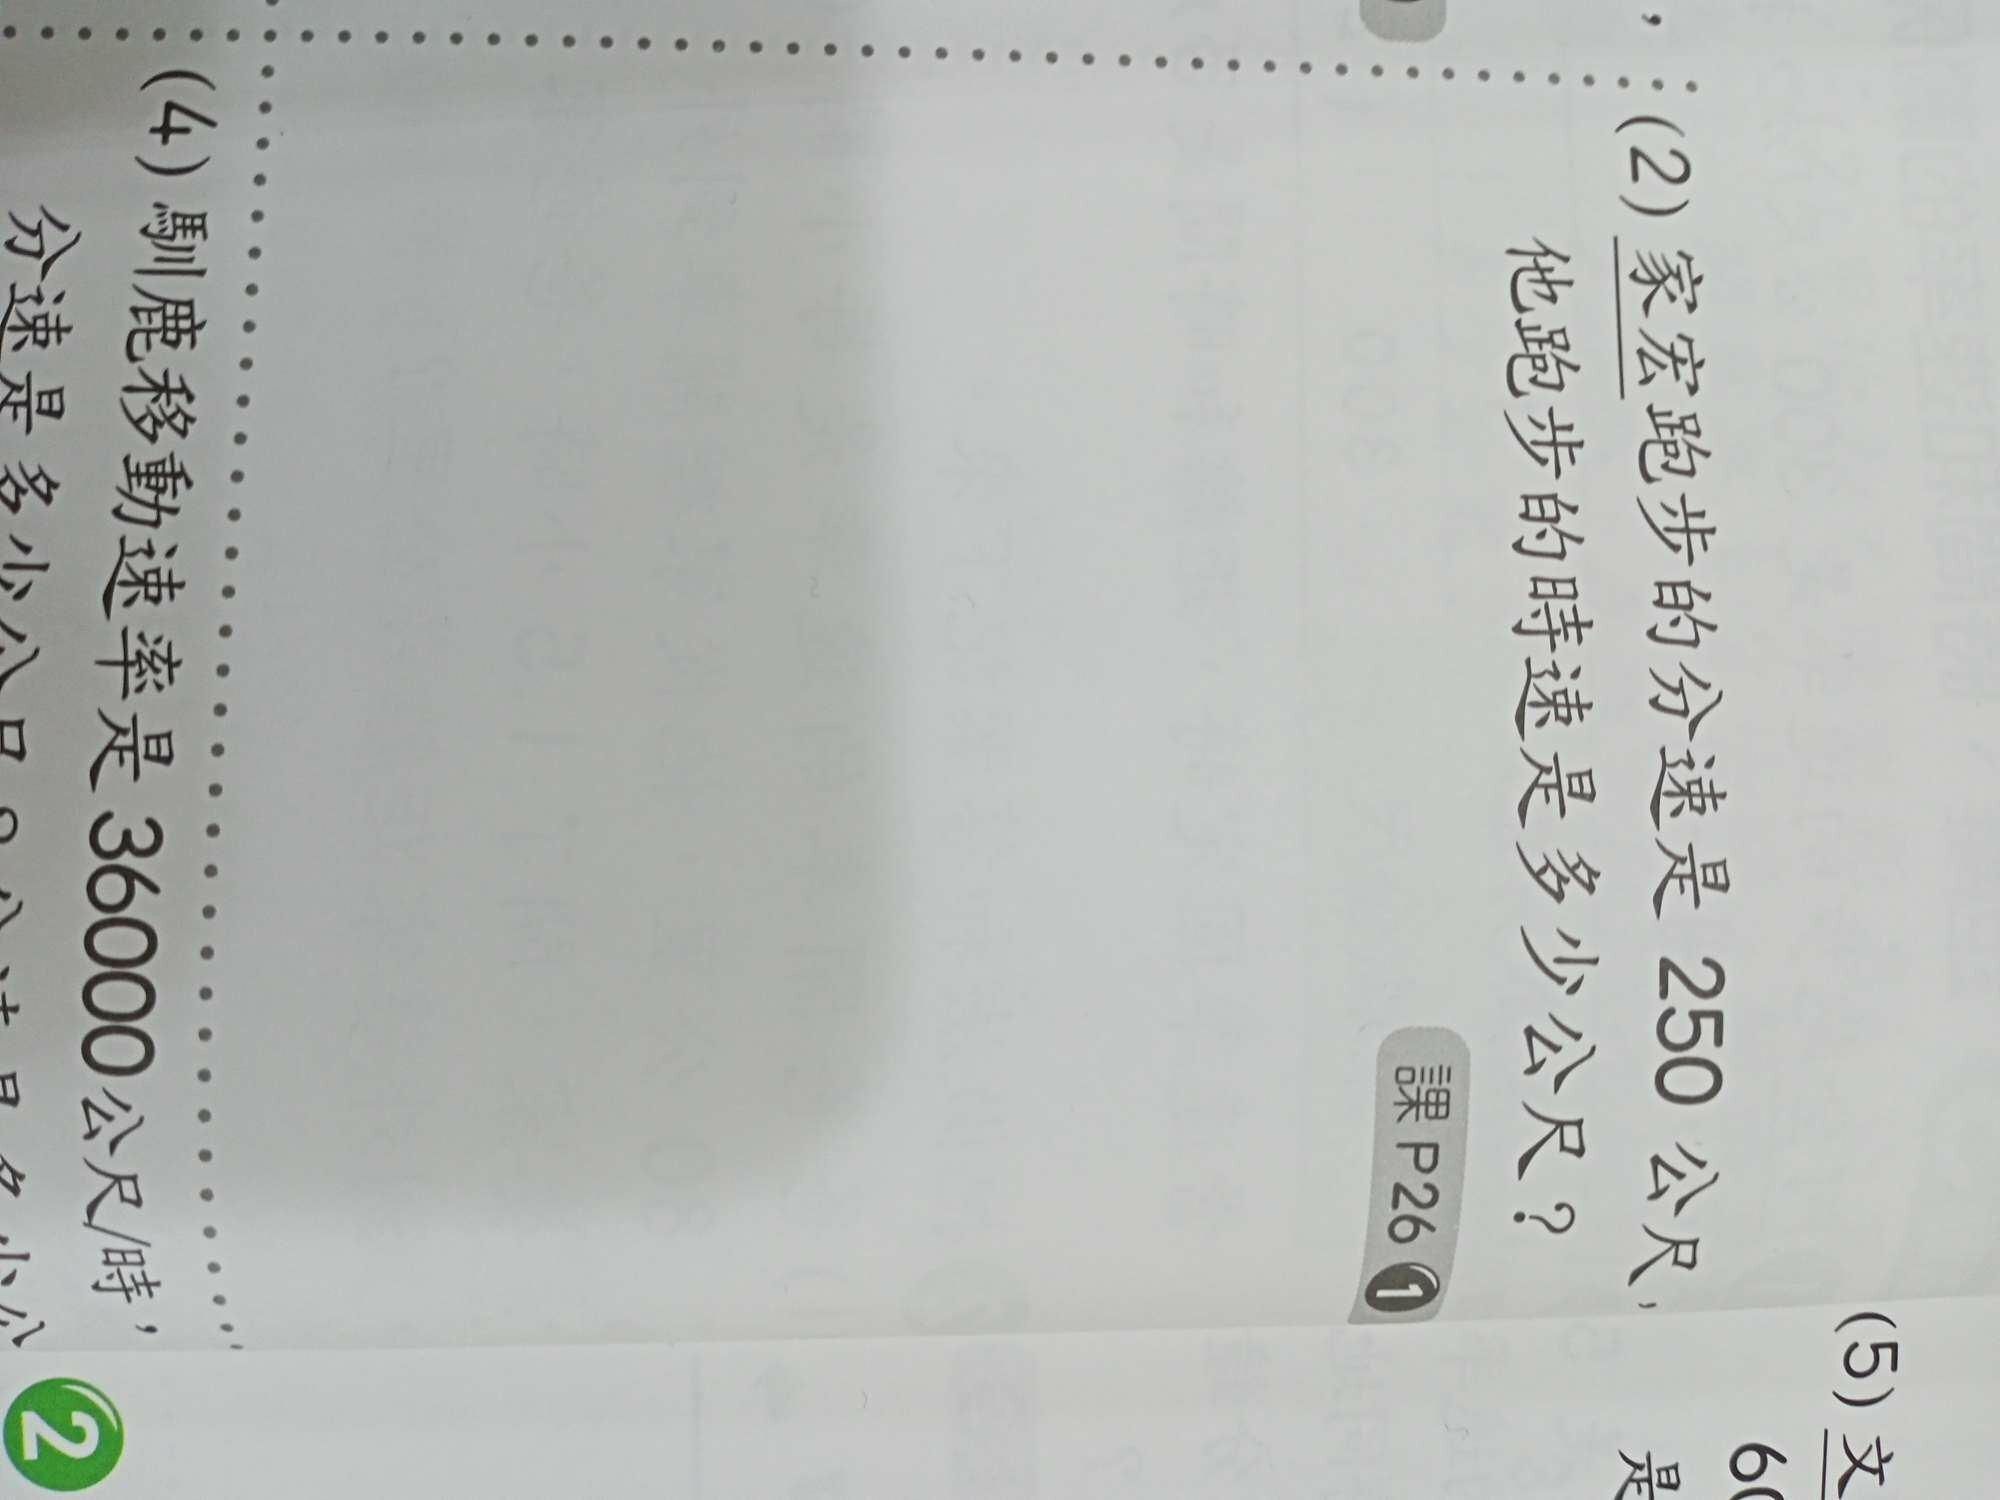 (2) 家宏跑步的分速是 250 公尺，
他跑步的時速是多少公尺？
課 P26 1
(4) 馴鹿移動速率是 36000 公尺/時，
分速是多少公尺？
(5) 文
60
是
2